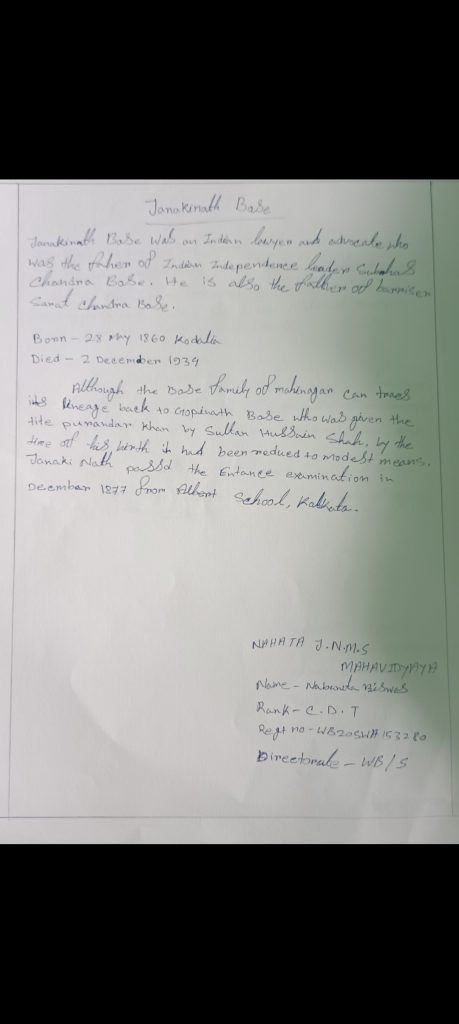 Janakinath Bose
Janakinath Bose was an Indian lawyer and advocate who
was the father of Indian Independence leader Subhas
Chandra Bose. He is also the father of barriser
Sarat Chandra Bose.
Born - 28 May 1860 Kodalia
Died - 2 December 1934
Although the Bose family of mahinagar can traes
its lineage back to Gopinath Bose who was given the
tite purandar Khan by Sultan Hussain Shah, by the
time of his birth it had been reduced to modest means.
Janaki Nath passd the Entance examination in
December 1877 from Albert School, Kalkata.
NAHATA J.N.M.S
MAHAVIDYAYA
Name - Nabanita Biswas
Rank - C.D.T
Regt no - WB20SWA153280
Directorate - WB/S